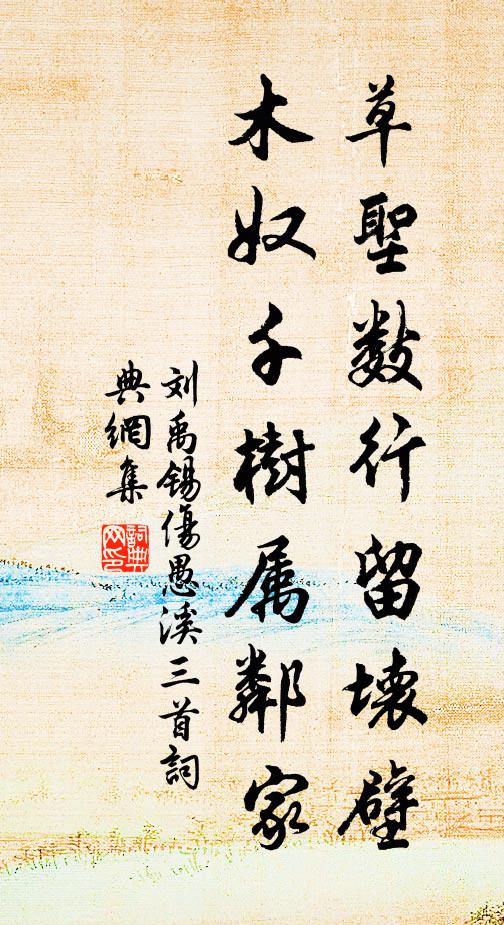 草聖数行留壊壁
木奴千樹属鄰家
刘禹锡傷愚溪三首詞
典網集
詞典
网印